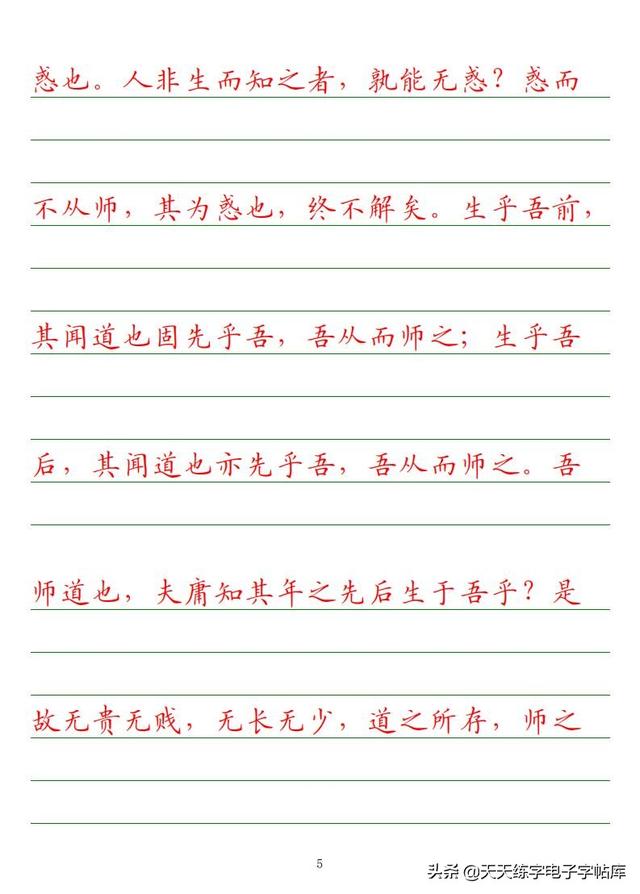 惑也。人非生而知之者，孰能无惑？惑而
不从师，其为惑也，终不解矣。生乎吾前，
其闻道也固先乎吾，吾从而师之；生乎吾
后，其闻道也亦先乎吾，吾从而师之。吾
师道也，夫庸知其年之先后生于吾乎？是
故无贵无贱，无长无少，道之所存，师之
5
头条 @天天练字电子字帖库